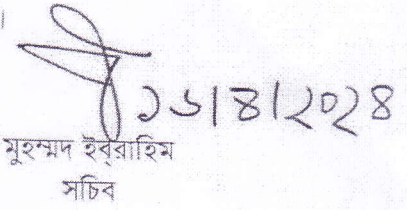 ১৬|৪|২০২৪
মুহম্মদ ইব্‌রাহিম
সচিব